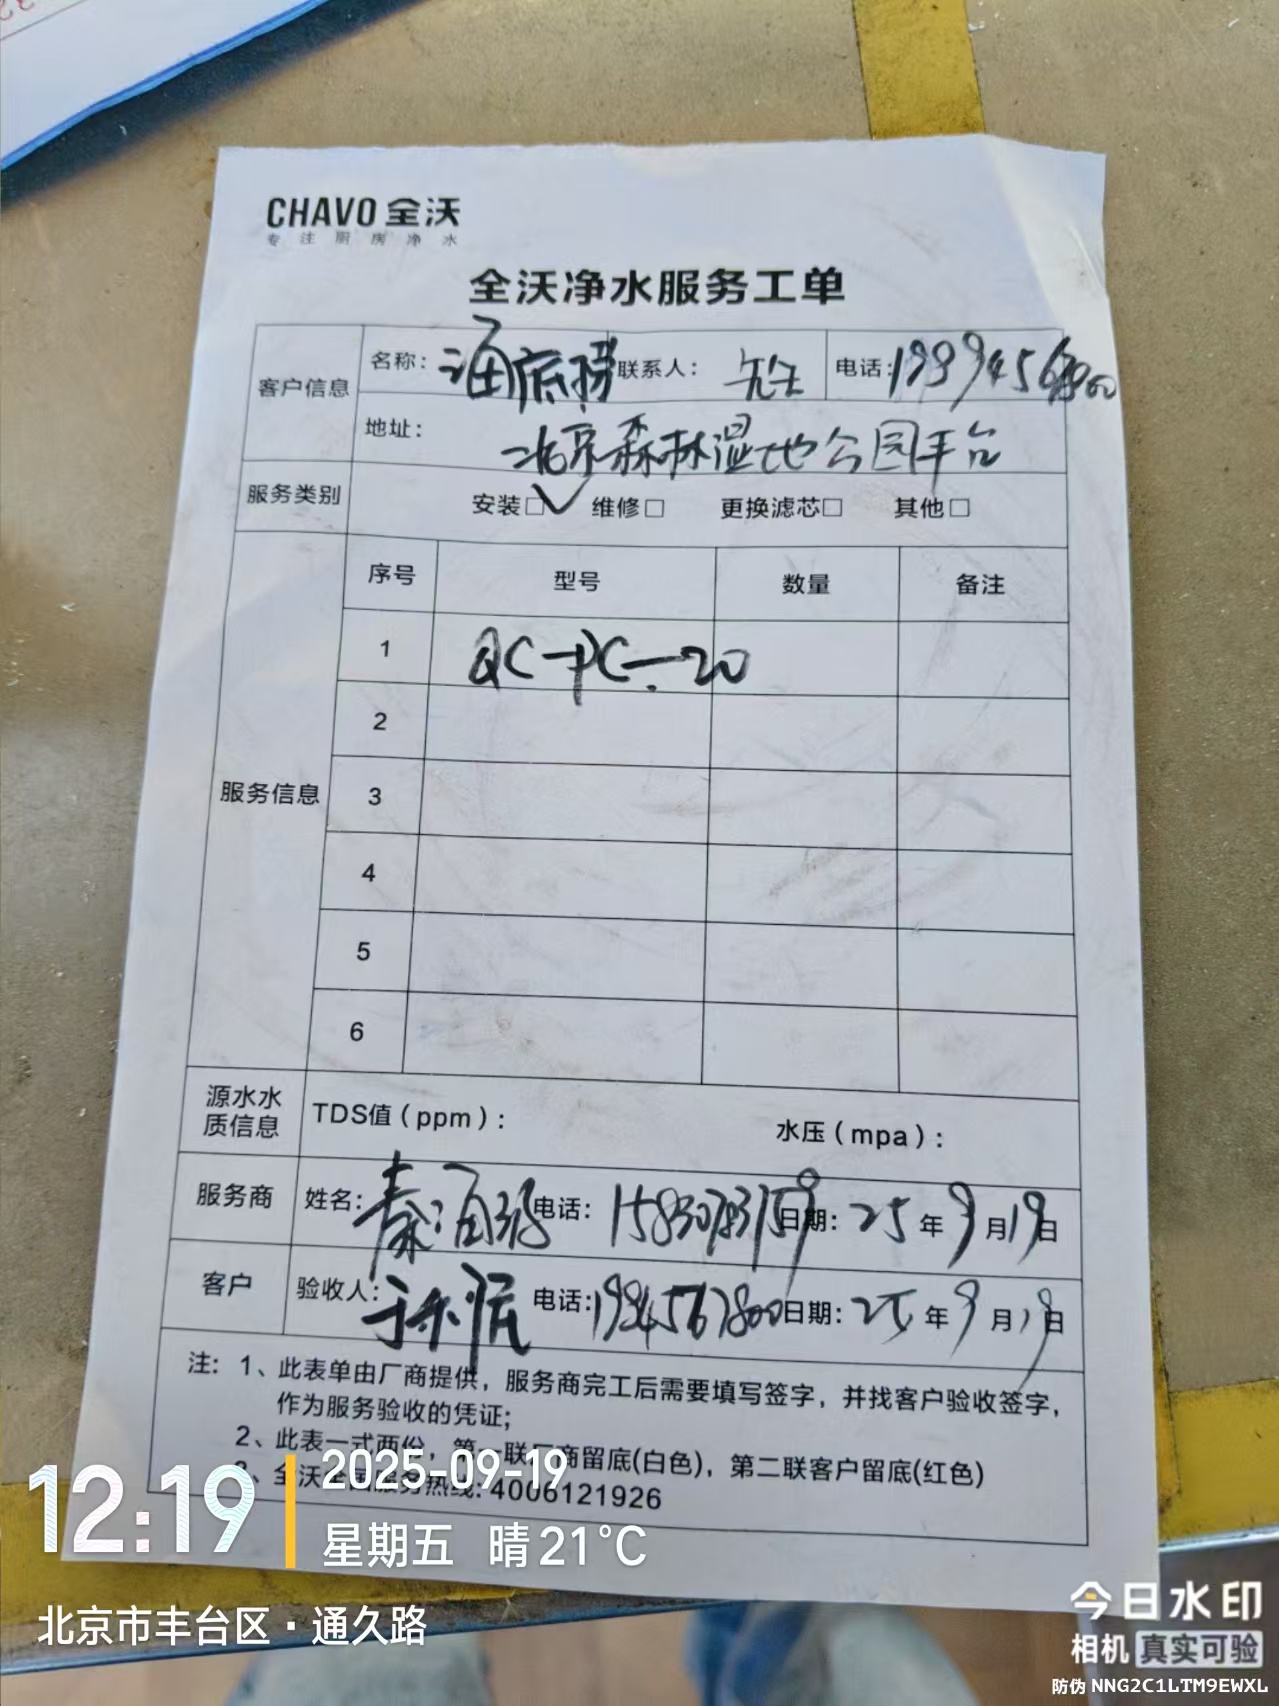 CHAVO 全沃
专注厨房净水
全沃净水服务工单
客户信息 名称：海底捞 联系人： 电话：
地址：北京森林湿地公园平台
服务类别 安装□✓ 维修□ 更换滤芯□ 其他□
服务信息 序号 型号 数量 备注
1 QC-PC-20
2
3
4
5
6
源水水质信息 TDS值（ppm）： 水压（mpa）：
服务商 姓名：秦海 电话： 日期：25年9月19日
客户 验收人： 电话： 日期：25年9月19日
注：1、此表单由厂商提供，服务商完工后需要填写签字，并找客户验收签字，
作为服务验收的凭证；
2、此表一式两份，第一联厂商留底(白色)，第二联客户留底(红色)
3、全沃全国服务热线：4006121926
12:19
2025-09-19
星期五 晴 21°C
北京市丰台区·通久路
今日水印
相机 真实可验
防伪 NNG2C1LTM9EWXL